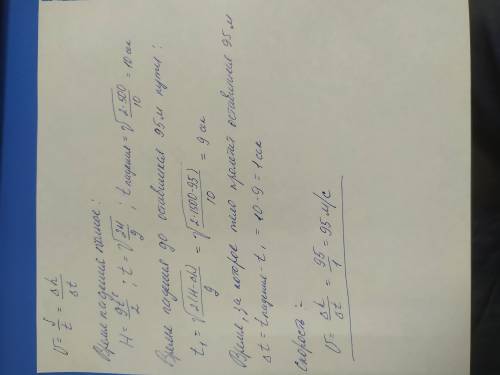 υ = S/t = Δh/Δt
Время падения полное:
H = gt²/2 ; t = √(2H/g) ; t падения = √(2·500/10) = 10 сек
Время падения до оставшихся 95 м пути:
t₁ = √(2(H-Δh)/g) = √(2·(500-95)/10) = 9 сек
Время, за которое тело пролетит оставшиеся 95 м
Δt = t падения - t₁ = 10-9 = 1 сек
Скорость:
υ = Δh/Δt = 95/1 = 95 м/с